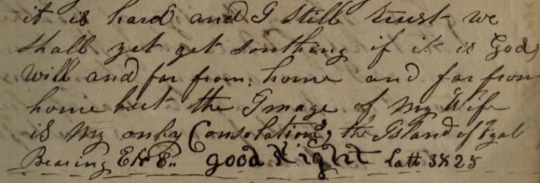 it is hard and I still trust we
shall yet get somthing if it is God,
will and far from home and far from
home but the Image of my Wife
is my onley Consolation, the Island of
Bearing E good Night latt 3825